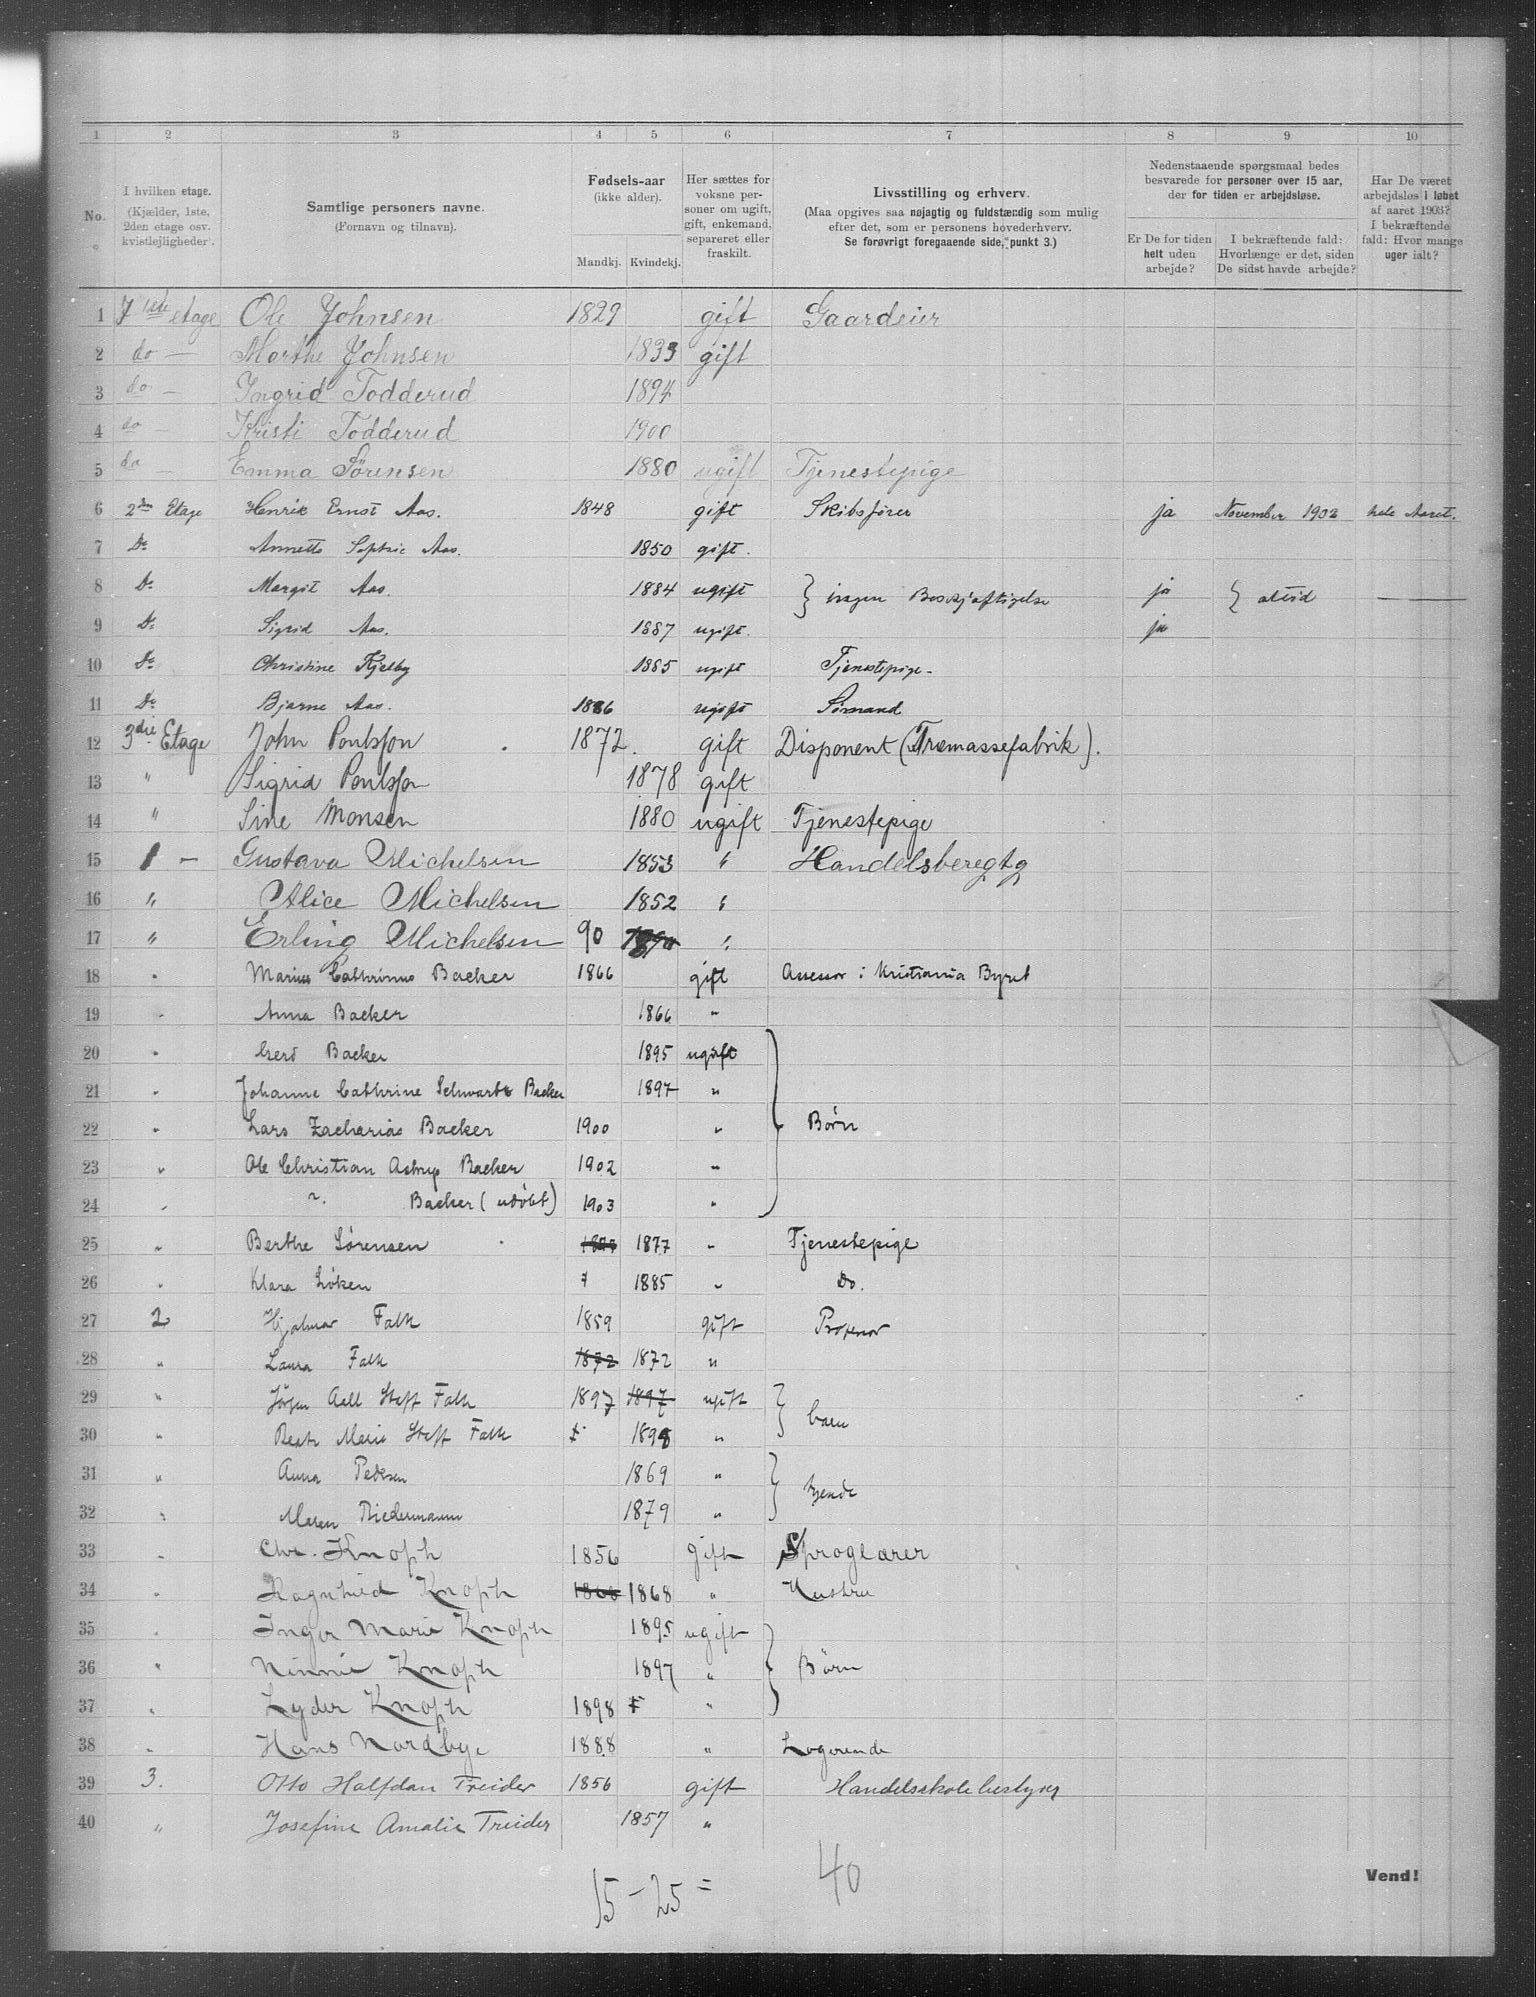 1 2 3 4 5 6 7 8 9 10
No.
I hvilken etage.
(Kjælder, 1ste,
2den etage osv.
kvistlejligheder.
Samtlige personers navne.
(Fornavn og tilnavn).
Fødsels-aar
(ikke alder).
Mandkj. Kvindekj.
Her sættes for
voksne per-
soner om ugift,
gift, enkemand,
separeret eller
fraskilt.
Livsstilling og erhverv.
(Maa opgives saa nøjagtig og fuldstændig som mulig
efter det, som er personens hovederhverv.
Se forøvrigt foregaaende side, punkt 3.)
Nedenstaaende spørgsmaal bedes
besvarede for personer over 15 aar,
der for tiden er arbejdsløse.
Er De for tiden
helt uden
arbejde?
I bekræftende fald:
Hvorlænge er det, siden
De sidst havde arbejde?
Har De været
arbejdsløs i løbet
af aaret 1903?
I bekræftende
fald: Hvor mange
uger ialt?
1 1ste etage Ole Johnsen 1829 gift Gaardeier
2 do — Marthe Johnsen 1833 gift
3 do — Ingrid Todderud 1894
4 do — Kristi Todderud 1900
5 do — Emma Sørensen 1880 ugift Tjenestepige
6 2den Etage Henrik Ernst Aas. 1848 gift Skibsfører ja November 1902 hele Aaret.
7 Do Annette Sophie Aas. 1850 gift.
8 Do Margit Aas. 1884 ugift } ingen Beskjæftigelse ja } altid —
9 Do Sigrid Aas. 1887 ugift. ja
10 Do Christine Kjelby 1885 ugift Tjenestepige.
11 Do Bjarne Aas. 1886 ugift Sømand
12 3die Etage John Poulsson 1872. gift Disponent (Træmassefabrik).
13 " Sigrid Poulsson 1878 gift
14 " Sine Monsen 1880 ugift Tjenestepige
15 1 — Gustava Michelsen 1853 " Handelsberegtg
16 " Alice Michelsen 1852 "
17 " Erling Michelsen 90 1890 "
18 " Marius Cathrinus Backer 1866 gift Assessor i Kristiania Byret
19 " Anna Backer 1866 "
20 " Gerd Backer 1895 ugift
21 " Johanne Cathrine Schwartz Backer 1897 "
22 " Lars Zacharias Backer 1900 " } Børn
23 " Ole Christian Astrup Backer 1902 "
24 " ". Backer (udøbt) 1903 "
25 " Berthe Sørensen 1877 1877 " Tjenestepige
26 " Klara Løken 1885 " Do.
27 2 Hjalmar Falk 1859 gift Professor
28 " Laura Falk 1872 1872 "
29 " Jørgen Aall Steff Falk 1897 1897 ugift } barn
30 " Beate Marie Steff Falk 1898 "
31 " Anna Pedersen 1869 " } tyende
32 " Maren Biedermann 1879 "
33 " Chr. Knoph 1856 gift Sproglærer
34 " Ragnhild Knoph 1868 1868 " Hustru
35 " Inger Marie Knoph 1895 ugift
36 " Ninnie Knoph 1897 " } Børn
37 " Lyder Knoph 1898 "
38 " Hans Nordbye 1888 " Logerende
39 3. Otto Halfdan Treider 1856 gift Handelsskolebestyrer
40 " Josefine Amalie Treider 1857 "
15 – 25 = 40
Vend!